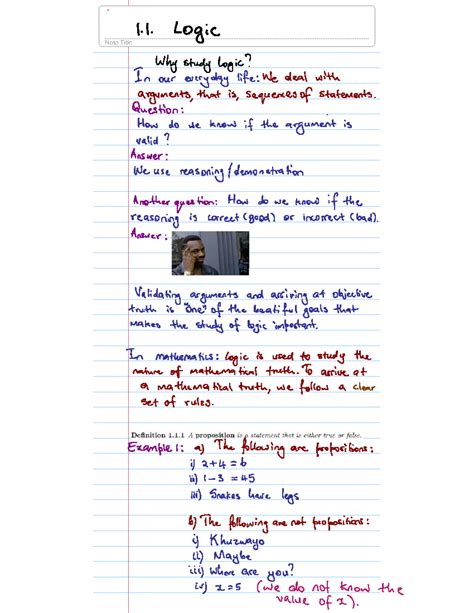 1.1. Logic
Note Title
Why study logic?
In our everyday life: We deal with
arguments, that is, sequences of statements.
Question:
How do we know if the argument is
valid ?
Answer:
We use reasoning / demonstration
Another question: How do we know if the
reasoning is correct (good) or incorrect (bad).
Answer:
Validating arguments and arriving at objective
truth is "one" of the beatiful goals that
makes the study of logic important.
In mathematics: logic is used to study the
nature of mathematical truth. To arrive at
a mathematical truth, we follow a clear
set of rules.
Definition 1.1.1 A proposition is a statement that is either true or false.
Example 1: a) The following are propositions:
i) 2+4 = 6
ii) 1-3 = 45
iii) Snakes have legs
b) The following are not propositions:
i) Khuzwayo
(ii) Maybe
iii) Where are you?
iv) x=5 (we do not know the
value of x).